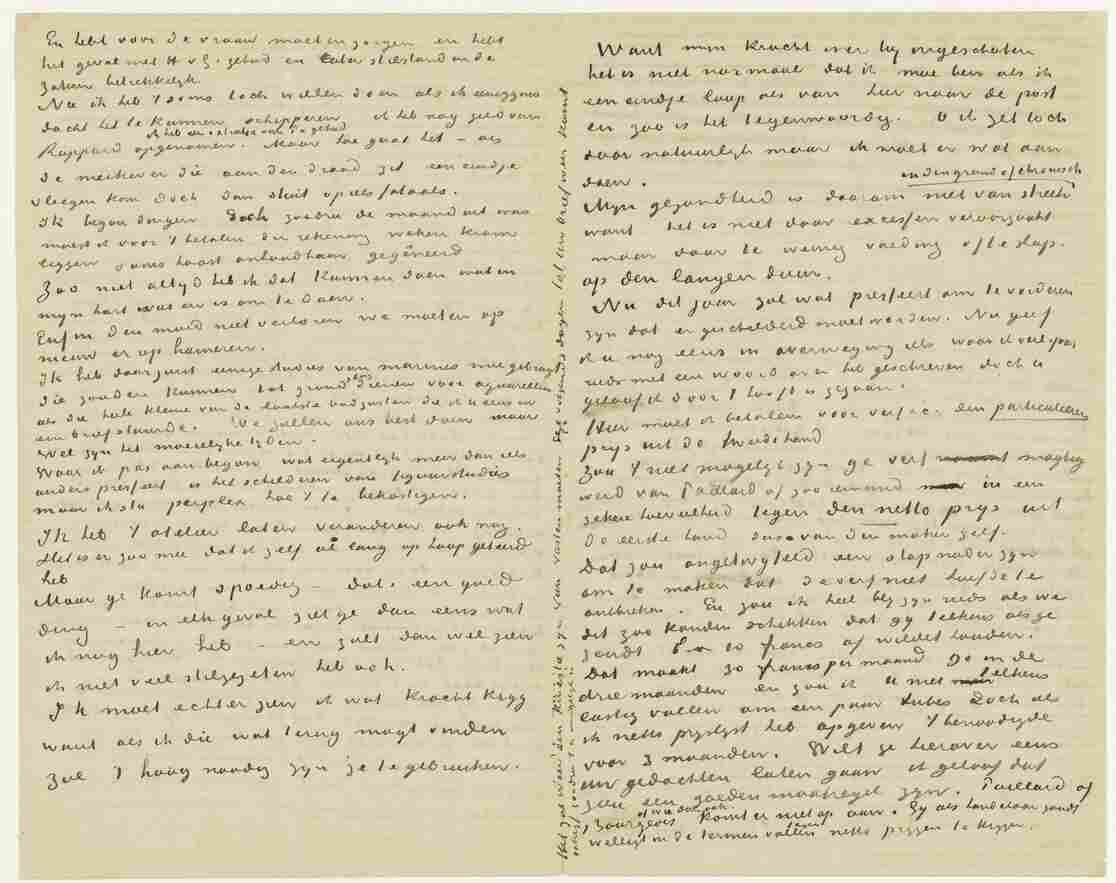 En hebt voor de vrouw moeten zorgen en hebt
het geval met H v G. gehad en later stilstand in de
zaken betrekkelijk.
Nu ik heb 't soms toch willen doen als ik eenigzins
dacht het te kunnen schipperen. ik heb nog geld van
Rappard opgenomen. Maar hoe gaat het – als
de meikever die aan den draad zit een eindje
vliegen kon doch dan stuit op iets fataals.
Ik begon dingen doch zoodra de maand uit was
moest ik voor 't betalen der rekening waken kwam
liggen soms haast onhoudbaar gegêneerd
Zoo niet altijd heb ik dat kunnen doen wat in
mijn hart was en is om te doen.
Enfin den moed niet verloren we moeten op
nieuw er op hameren.
Ik heb daar juist eenige studies van marines meegebragt
die zouden kunnen tot grondslag dienen voor aquarellen
als die hele kleine van de laatste badgasten die ik u eens in
een brief stuurde. We zullen ons best doen maar
Wel zijn het moeielijke tijden.
Waar ik pas aan begon wat eigentlijk meer dan iets
anders presseert is het schilderen van figuurstudies
maar ik sta perplex hoe 't te bekostigen.
Ik heb 't atelier laten veranderen ook nog.
Het is er zoo mee dat ik zelf al lang op hoop geteerd
heb
Maar ge komt spoedig – dat's een goed
ding – in elk geval ziet ge dan eens wat
ik nog hier heb – en zult dan wel zien
ik niet veel stilgezeten heb ook.
Ik moet echter zien ik wat kracht krijg
want als ik die wat terug mogt vinden
Zal 't hoog noodig zijn ze te gebruiken.
Want mijn kracht is er bij ingeschoten
het is niet normaal dat ik moe ben als ik
een eindje loop als van hier naar de post
en zoo is het tegenwoordig. O ik zet toch
door natuurlijk maar ik moet er wat aan
doen.
in den grond of chronisch
Mijn gezondheid is daarom niet van streek
want het is niet door excessen veroorzaakt
maar door te weinig voeding of te slap.
op den langen duur.
Nu dit jaar zal wat presseert om te vorderen
zijn dat er geschilderd moet worden. Nu geef
ik u nog eens in overweging iets waar ik veel pas
reeds met een woord over heb geschreven doch u
geloof ik door 't hoofd is gegaan.
Hier moet ik betalen voor verf &c. den particulieren
prijs uit de tweede hand
Zou 't niet mogelijk zijn ge verf magtig
werd van Paillard of zoo iemand in een
zekere hoeveelheid tegen den netto prijs uit
de eerste hand dus van den maker zelf.
Dat zou ongetwijfeld een stap nader zijn
om te maken dat de verf niet hoefde te
ontbreken. En zou ik heel blij zijn reeds als we
dit zoo konden schikken dat gij telkens als ge
zendt 10 francs af wildet houden.
Dat maakt 30 francs per maand 90 in de
drie maanden en zou ik u niet telkens
lastig vallen om een paar tubes doch als
ik netto prijslijst heb opgeven 't benoodigde
voor 3 maanden. Wilt ge hierover eens
uw gedachten laten gaan ik geloof dat
zou een goeden maatregel zijn. Paillard of
Bourgeois of wie dan ook komt er niet op aan. Gij als handelaar zoudt
welligt in de termen vallen netto prijzen te krijgen.